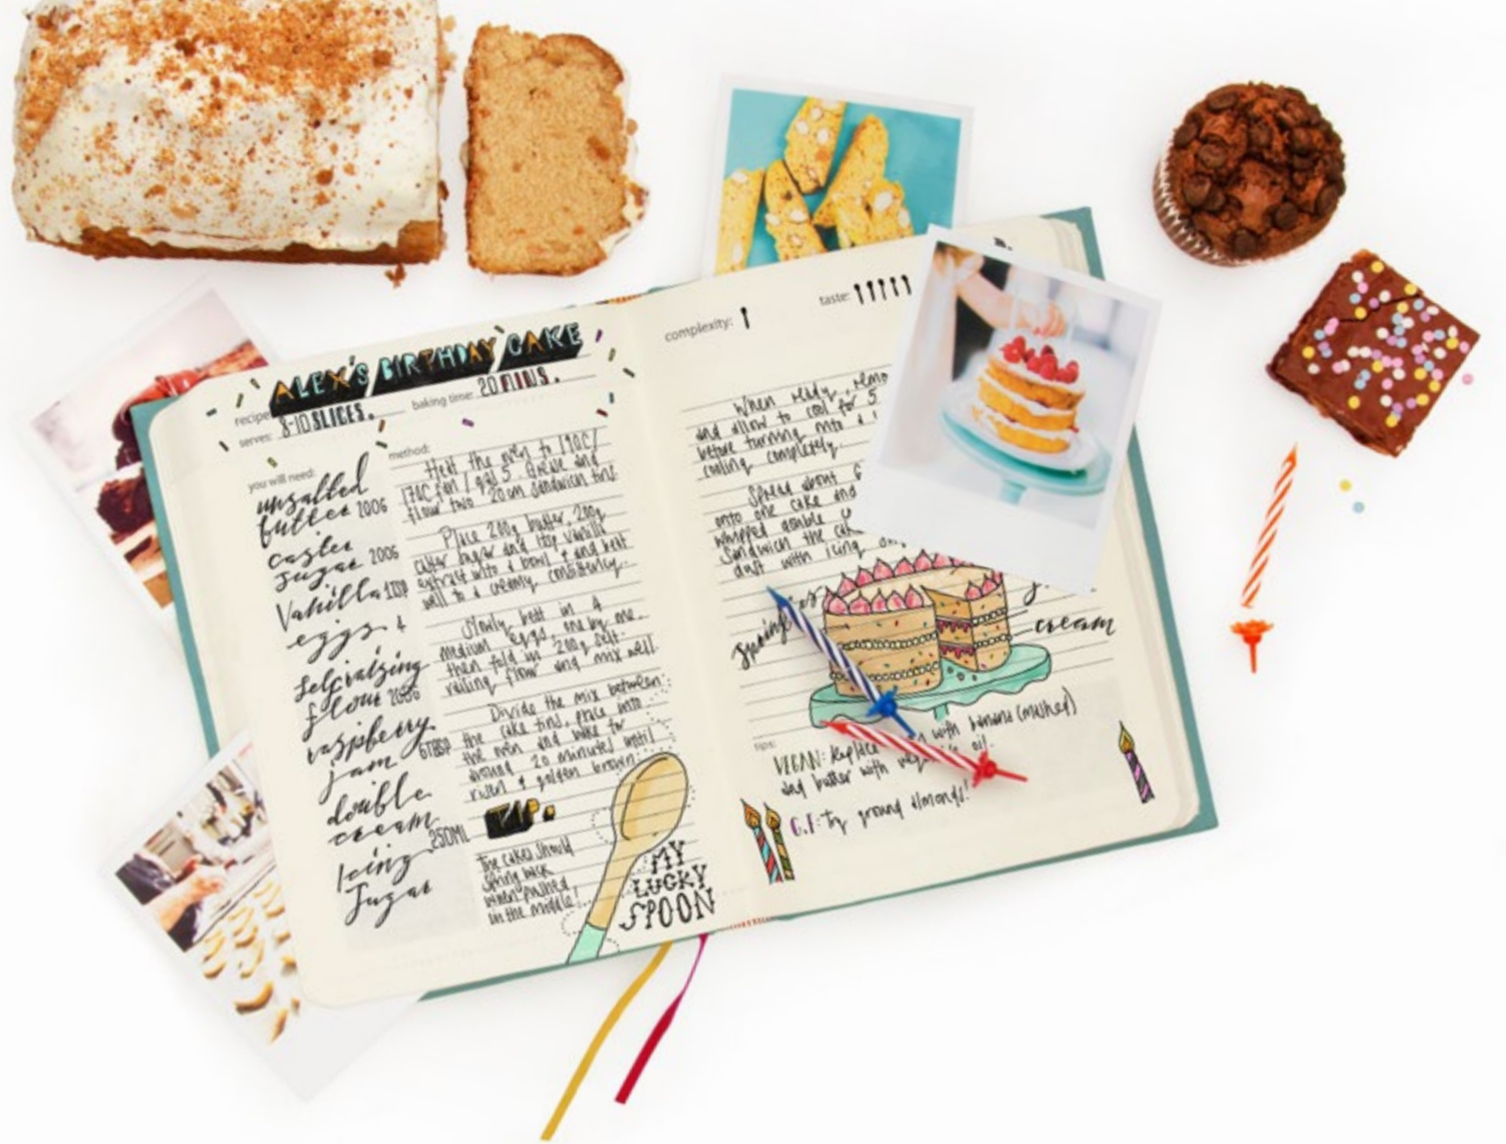 ALEX'S BIRTHDAY CAKE
recipe:
serves: 8-10 SLICES.
baking time: 20 MINS.
you will need:
unsalted
butter 200G
caster
sugar 200G
Vanilla 1tsp
eggs 4
Self raising
flour 200G
raspberry
jam 6TBSP
double
cream 250ML
Icing
Sugar
method:
Heat the oven to 190C/
170C fan / gas 5. Grease and
flour two 20cm sandwich tins.
Place 200g butter, 200g
caster sugar and 1tsp vanilla
extract into a bowl and beat
well to a creamy consistency.
Slowly beat in 4
medium eggs, one by one.
then fold in 200g self-
raising flour and mix well.
Divide the mix between
the cake tins, place into
the oven and bake for
around 20 minutes until
risen & golden brown.
TIP:
The cakes should
spring back
when pushed
in the middle!
MY
LUCKY
SPOON
complexity:
taste:
When ready, remo
and allow to cool for 5
before turning into a
cooling completely.
Spread about 6
onto one cake and
whipped double c
Sandwich the cak
dust with icing
cream
tips:
VEGAN: Replace with banana (mashed)
and butter with oil.
G.F: Try ground almonds!